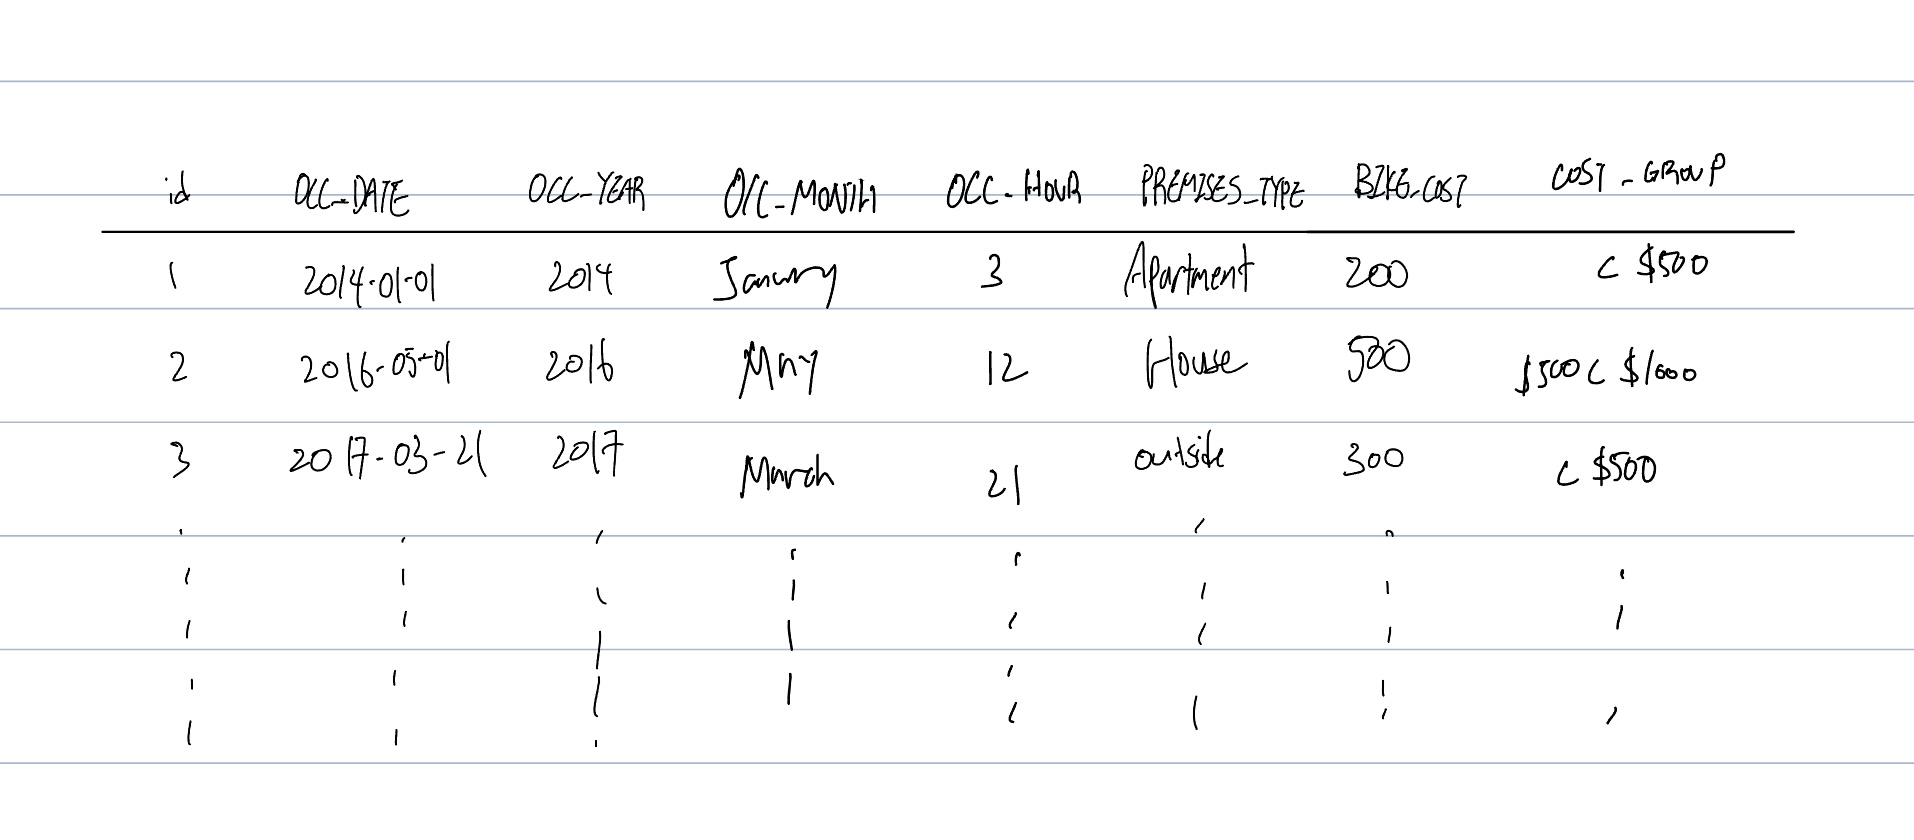 id OCC_DATE OCC_YEAR OCC_MONTH OCC_HOUR PREMISES_TYPE BIKE_COST COST_GROUP
1 2014-01-01 2014 January 3 Apartment 200 < $500
2 2016-05-01 2016 May 12 House 500 $500 < $1000
3 2017-03-21 2017 March 21 outside 300 < $500